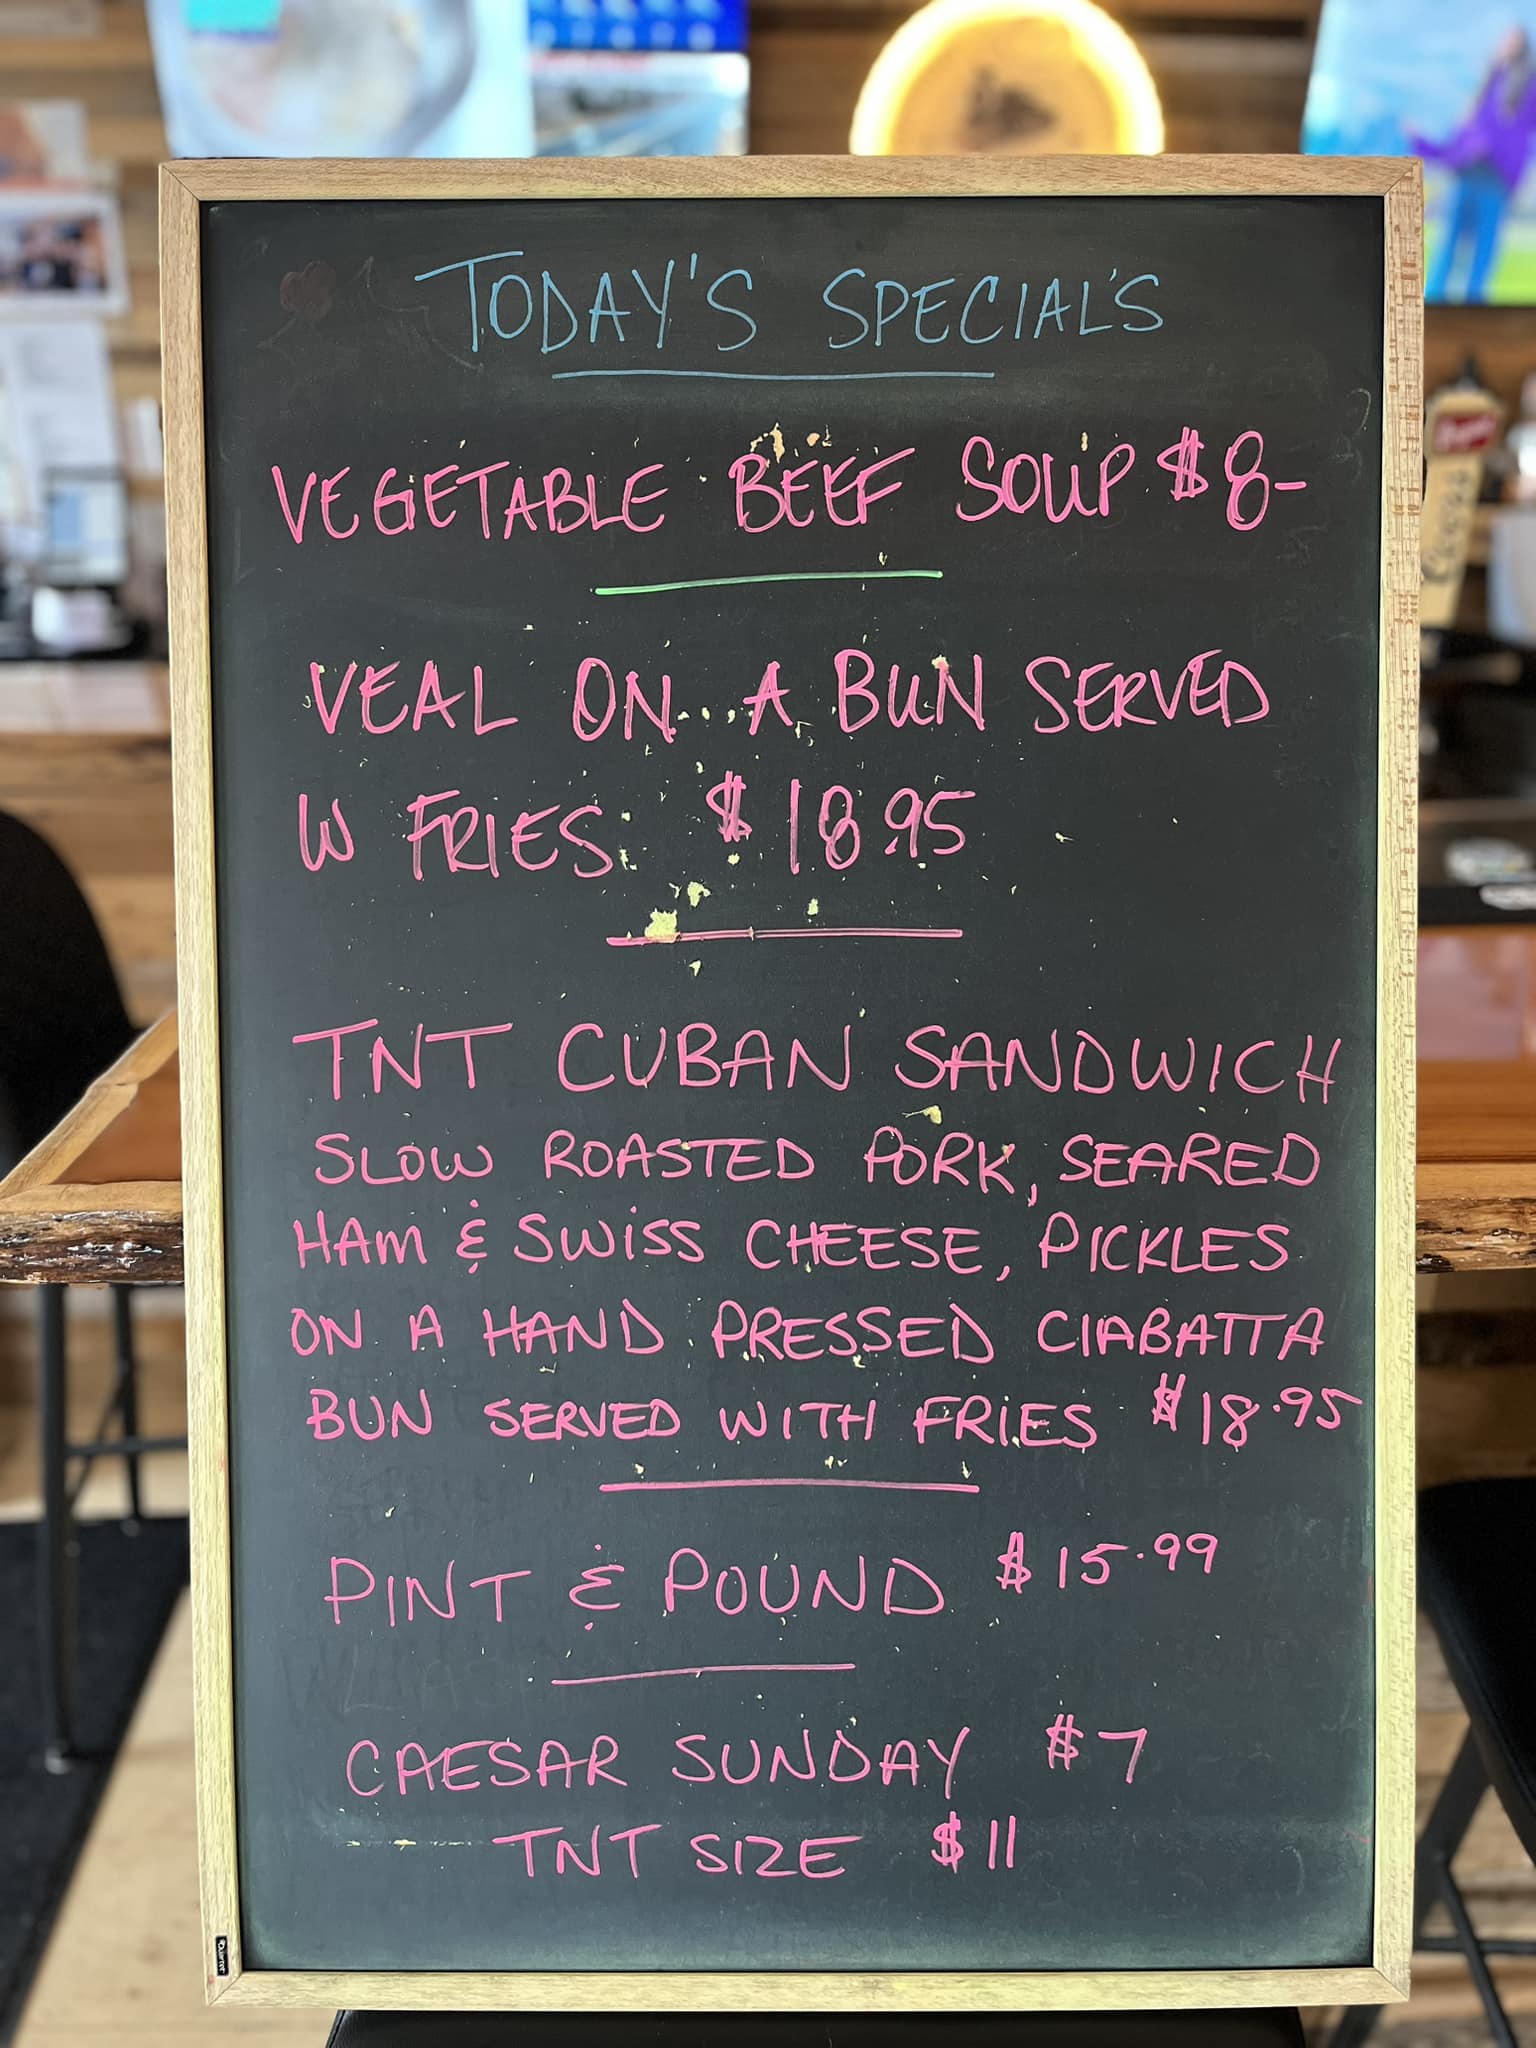 TODAY'S SPECIAL'S
VEGETABLE BEEF SOUP $8-
VEAL ON A BUN SERVED
W FRIES $18.95
TNT CUBAN SANDWICH
SLOW ROASTED PORK, SEARED
HAM & SWISS CHEESE, PICKLES
ON A HAND PRESSED CIABATTA
BUN SERVED WITH FRIES $18.95
PINT & POUND $15.99
CAESAR SUNDAY $7
TNT SIZE $11
Quartet